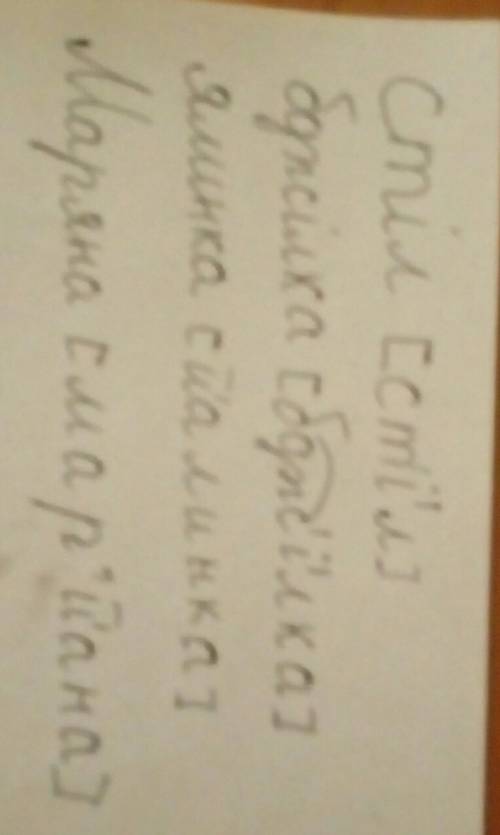 Стіл [ст'іл]
бджілка [бдж'ілка]
ялинка [йалинка]
Маряна [мар'йана]